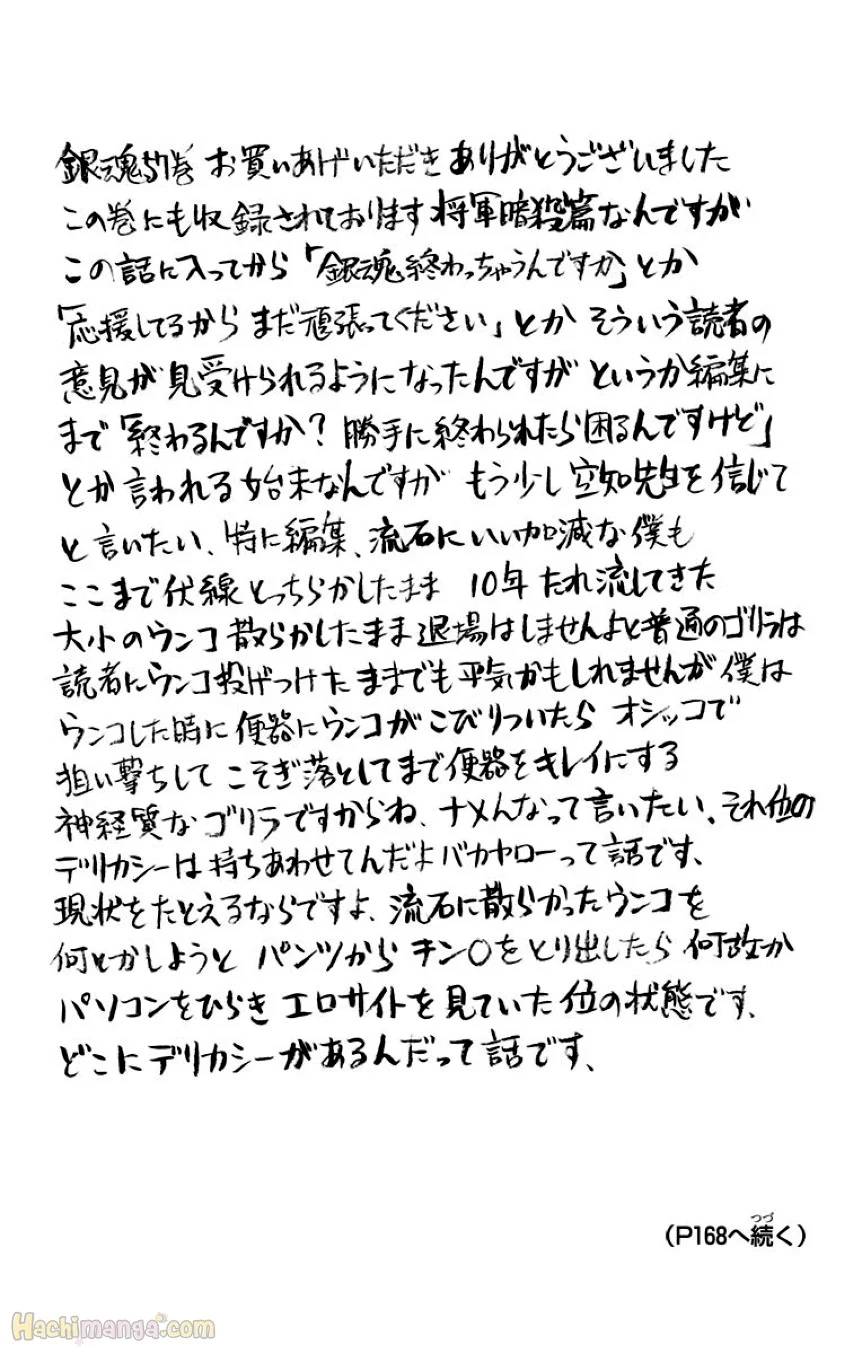 銀魂57巻 お買いあげいただき ありがとうございました
この巻にも収録されております 将軍暗殺篇なんですが
この話に入ってから「銀魂終わっちゃうんですか」とか
「応援してるから まだ頑張ってください」とか そういう読者の
意見が見受けられるようになったんですが というか編集に
まで「終わるんですか? 勝手に終わられたら困るんですけど」
とか言われる始末なんですが もう少し空知先生を信じて
と言いたい、特に編集、流石にいい加減な僕も
ここまで伏線とっちらかしたまま 10年たれ流してきた
大小のウンコ散らかしたまま退場はしませんよと普通のゴリラは
読者にウンコ投げつけたままでも平気かもしれませんが僕は
ウンコした時に便器にウンコがこびりついたら オシッコで
狙い撃ちして こそぎ落としてまで便器をキレイにする
神経質なゴリラですからね、ナメんなって言いたい。それ位の
デリカシーは持ちあわせてんだよバカヤローって話です、
現状をたとえるならですよ、流石に散らかったウンコを
何とかしようと パンツから チン〇をとり出したら 何故か
パソコンをひらき エロサイトを見ていた位の状態です、
どこにデリカシーがあるんだって話です、
つづ
(P168へ続く)
Hachimanga.com